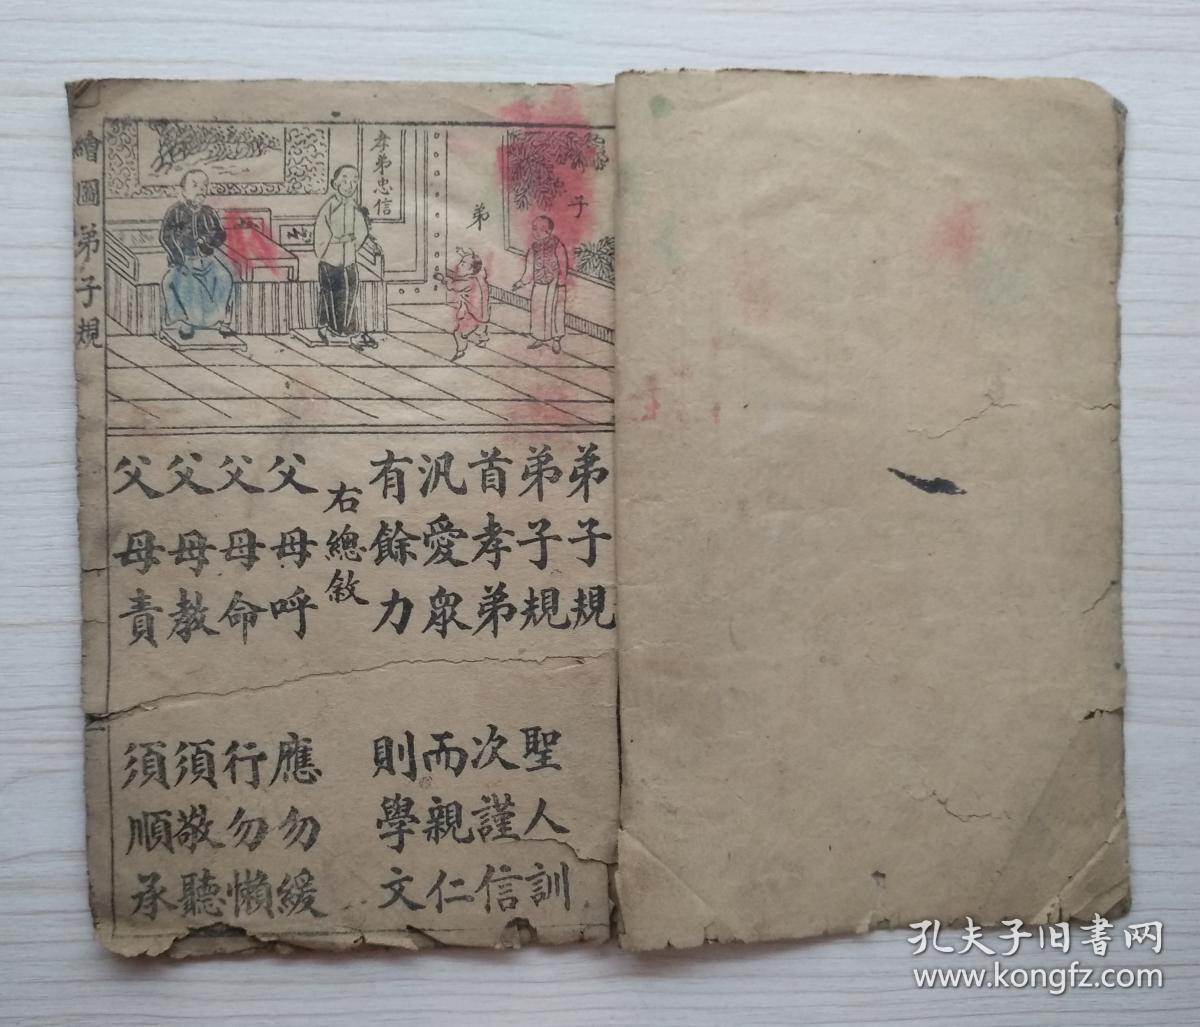 子
弟
孝弟忠信
弟子規
弟子規 聖人訓
首孝弟 次謹信
汎愛眾 而親仁
有餘力 則學文
右總敘
父母呼 應勿緩
父母命 行勿懶
父母教 須敬聽
父母責 須順承
繪圖弟子規
孔夫子旧書网
www.kongfz.com